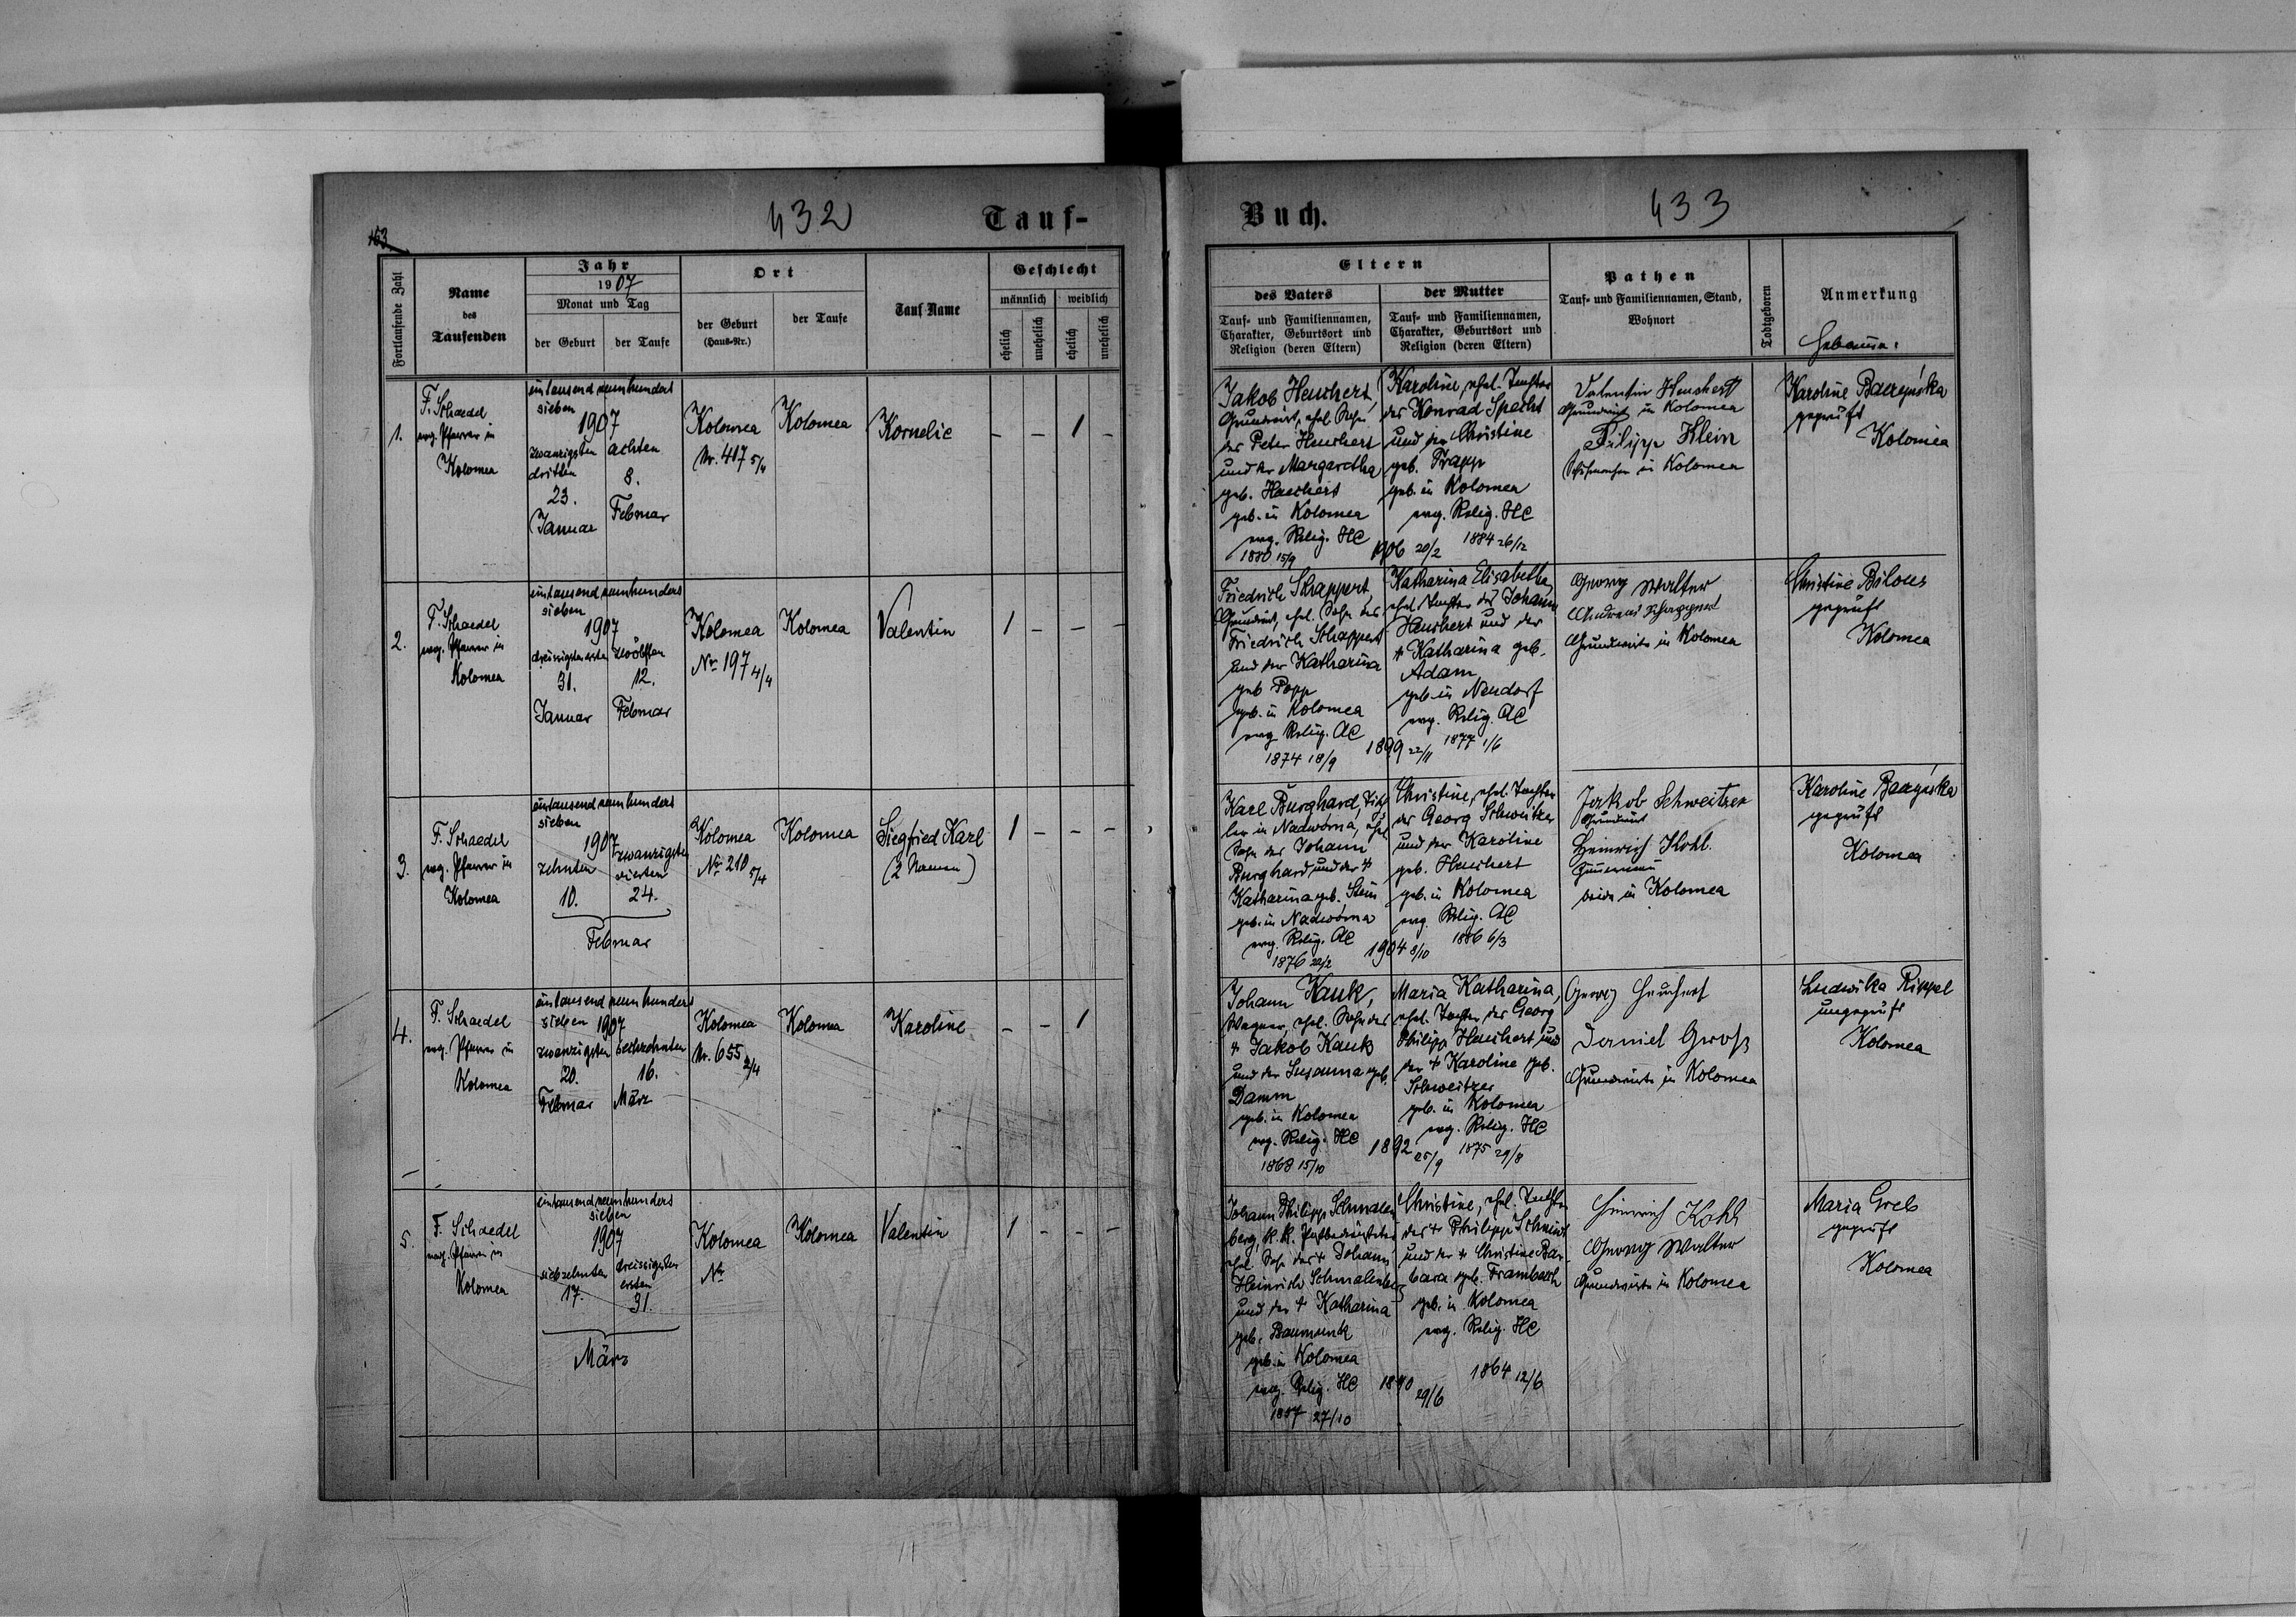 432
Tauf-
153
Fortlaufende Zahl
Name
des
Taufenden
Jahr
1907
Monat und Tag
der Geburt
der Taufe
Ort
der Geburt
(Haus-Nr.)
der Taufe
Tauf Name
Geschlecht
männlich
weiblich
ehelich
unehelich
ehelich
unehelich
1.
F. Schaedel
evg. Pfarrer in
Kolomea
eintausend neunhundert
sieben
1907
zwanzigsten
dritten
23.
Januar
achten
8.
Februar
Kolomea
Nr. 417 5/4
Kolomea
Kornelie
- - 1 -
2.
F. Schaedel
evg. Pfarrer in
Kolomea
eintausend neunhundert
sieben
1907
dreissigsten ersten
31.
Januar
zwölften
12.
Februar
Kolomea
Nr 197 4/4
Kolomea
Valentin
1 - - -
3.
F. Schaedel
evg. Pfarrer in
Kolomea
eintausend neunhundert
sieben
1907
zehnten
10.
zwanzigsten
vierten
24.
Februar
Kolomea
Nr 210 5/4
Kolomea
Siegfried Karl
(2 Namen)
1 - - -
4.
F. Schaedel
evg. Pfarrer in
Kolomea
eintausend neunhundert
sieben 1907
zwanzigsten
20.
Februar
sechzehnten
16.
März
Kolomea
Nr. 655 2/4
Kolomea
Karoline
- - 1
5.
F. Schaedel
evg. Pfarrer in
Kolomea
eintausend neunhundert
sieben
1907
siebzehnten
17.
dreissigsten
ersten
31.
März
Kolomea
Nr
Kolomea
Valentin
1 - - -
Buch.
433
Eltern
des Vaters
Tauf- und Familiennamen,
Charakter, Geburtsort und
Religion (deren Eltern)
der Mutter
Tauf- und Familiennamen,
Charakter, Geburtsort und
Religion (deren Eltern)
Pathen
Tauf- und Familiennamen, Stand,
Wohnort
Todtgeboren
Anmerkung
Hebamme:
Jakob Heuchert,
Grundwirt, ehel. Sohn
des Peter Heuchert
und der Margaretha
geb. Heuchert
geb. in Kolomea
evg. Relig. HC
1880 15/9
1906 20/2
Karoline, ehel. Tochter
des Konrad Specht
und der Christine
geb. Trapp
geb. in Kolomea
evg. Relig. HC
1884 26/12
Valentin Heuchert
Grundwirt in Kolomea
Filipp Klein
in Kolomea
Karoline Baczyńska
geprüft
Kolomea
Friedrich Schappert,
Grundwirt, ehel. Sohn des
Friedrich Schappert
und der Katharina
geb Popp
geb. in Kolomea
evg Relig. AC
1874 18/9
1899 22/11
Katharina Elisabetha,
ehel. Tochter des Johann
Heuchert und der
† Katharina geb.
Adam
geb. in Neudorf
evg. Relig. AC
1877 1/6
Georg Walter
Andreas Schappert
Grundwirte in Kolomea
Christine Bilous
geprüft
Kolomea
Karl Burghard, Tisch-
ler in Nadwórna, ehel
Sohn des Johann
Burghard und der †
Katharina geb. Stein
geb. in Nadwórna
evg. Relig. AC
1876 22/2
1904 8/10
Christine, ehel. Tochter
des Georg Schweitzer
und der Karoline
geb. Heuchert
geb. in Kolomea
evg. Relig. AC
1886 6/3
Jakob Schweitzer
Grundwirt
Heinrich Kohl.
beide in Kolomea
Karoline Baczyńska
geprüft
Kolomea
Johann Kauk,
Wagner, ehel. Sohn des
† Jakob Kauk
und der Susanna geb.
Damm
geb. in Kolomea
evg. Relig. HC
1868 15/10
1892 25/9
Maria Katharina,
ehel. Tochter des Georg
Philipp Heuchert und
der † Karoline geb.
Schweitzer
geb. in Kolomea
evg. Relig. HC
1875 29/8
Georg Heuchert
Daniel Groß
Grundwirte in Kolomea
Ludwika Rippel
ungeprüft
Kolomea
Johann Philipp Schmalen-
berg, k. k. Postbediensteter
ehel. Sohn des † Johann
Heinrich Schmalenberg
und der † Katharina
geb. Baumunk
geb. in Kolomea
evg. Relig. HC
27/10
29/6
Christine, ehel. Tochter
des † Philipp Schmidt
und der † Christine Bar-
bara geb. Frambach
geb. in Kolomea
evg. Relig. HC
1864 12/6
Heinrich Kohl
Georg Walter
Grundwirte in Kolomea
Maria Greb
geprüft
Kolomea